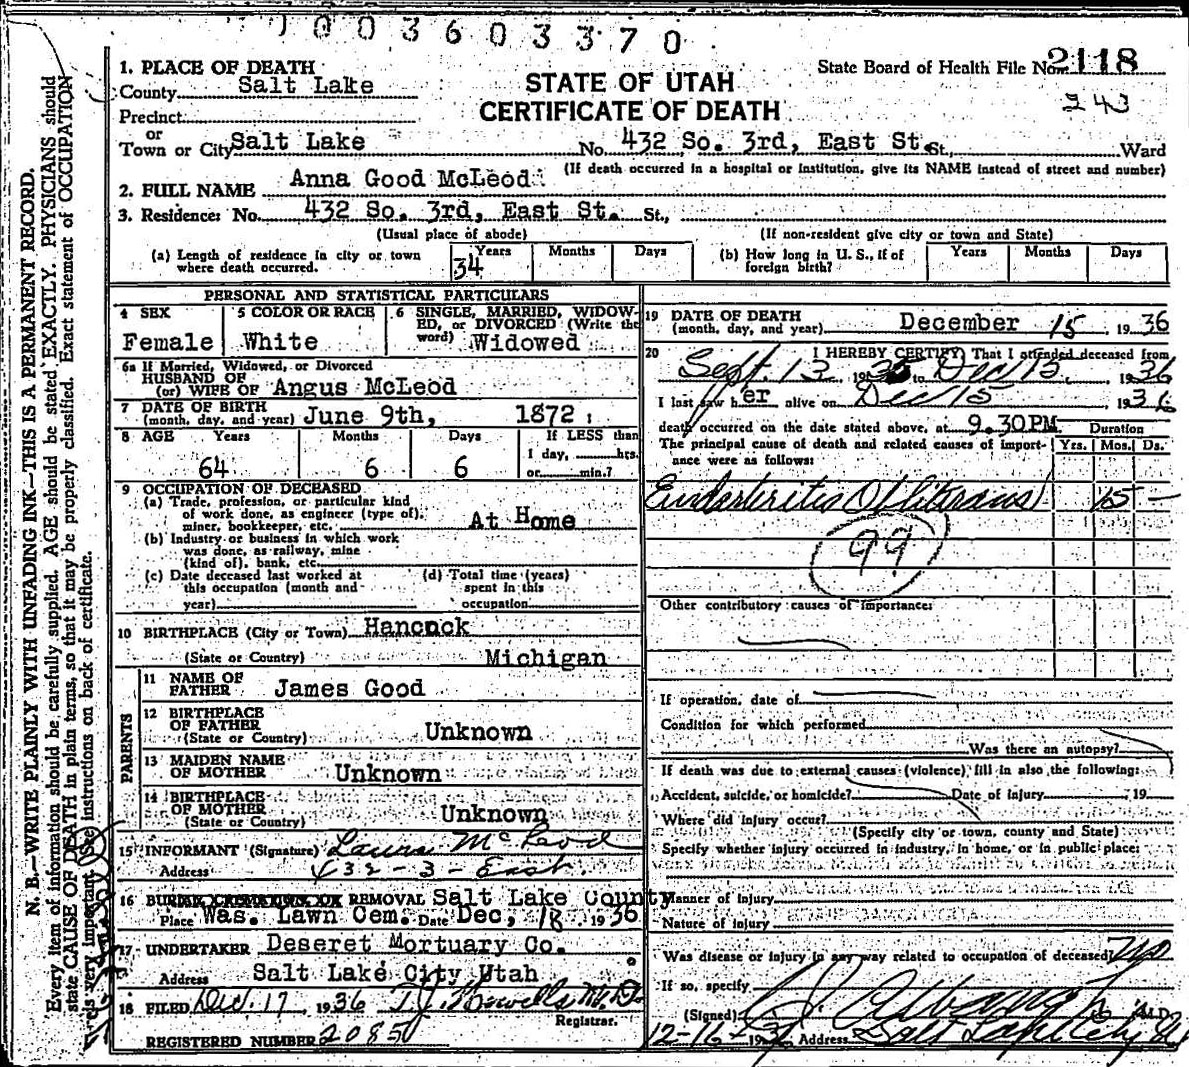 1003603370
1. PLACE OF DEATH
County Salt Lake
STATE OF UTAH
CERTIFICATE OF DEATH
State Board of Health File No. 2118
243
Precinct
or
Town or City Salt Lake No. 432 So. 3rd, East St. St., Ward
(If death occurred in a hospital or institution, give its NAME instead of street and number)
2. FULL NAME Anna Good McLeod
3. Residence: No. 432 So. 3rd, East St. St.,
(Usual place of abode) (If non-resident give city or town and State)
(a) Length of residence in city or town where death occurred. 34 Years Months Days
(b) How long in U. S., if of foreign birth? Years Months Days
PERSONAL AND STATISTICAL PARTICULARS
4 SEX Female
5 COLOR OR RACE White
6 SINGLE, MARRIED, WIDOWED, or DIVORCED (Write the word) Widowed
6a If Married, Widowed, or Divorced
HUSBAND OF
(or) WIFE OF Angus McLeod
7 DATE OF BIRTH
(month, day, and year) June 9th, 1872
8 AGE Years Months Days If LESS than
1 day, hrs.
64 6 6 or min.?
9 OCCUPATION OF DECEASED
(a) Trade, profession, or particular kind
of work done, as engineer (type of),
miner, bookkeeper, etc. At Home
(b) Industry or business in which work
was done, as railway, mine
(kind of), bank, etc.
(c) Date deceased last worked at
this occupation (month and
year)
(d) Total time (years)
spent in this
occupation
10 BIRTHPLACE (City or Town) Hancock
(State or Country) Michigan
PARENTS
11 NAME OF
FATHER James Good
12 BIRTHPLACE
OF FATHER
(State or Country) Unknown
13 MAIDEN NAME
OF MOTHER Unknown
14 BIRTHPLACE
OF MOTHER
(State or Country) Unknown
15 INFORMANT (Signature) Laura McLeod
Address 432-3-East.
16 BURIAL CREMATION OR REMOVAL Salt Lake County
Place Was. Lawn Cem. Date Dec, 18 1936
17 UNDERTAKER Deseret Mortuary Co.
Address Salt Lake City Utah
18 FILED Dec. 17 1936 T.J. Howells M.D.
Registrar.
REGISTERED NUMBER 20850
19 DATE OF DEATH
(month, day, and year) December 15, 1936
20 I HEREBY CERTIFY, That I attended deceased from
Sept. 13, 1935 to Dec 15, 1936
I last saw her alive on Dec 15, 1936
death occurred on the date stated above, at 9.30 PM. Duration
The principal cause of death and related causes of importance were as follows: Yrs. Mos. Ds.
Endarteritis Obliterans 15 -
99
Other contributory causes of importance:
If operation, date of
Condition for which performed
Was there an autopsy?
If death was due to external causes (violence) fill in also the following:
Accident, suicide, or homicide? Date of injury 19
Where did injury occur?
(Specify city or town, county and State)
Specify whether injury occurred in industry, in home, or in public place:
Manner of injury
Nature of injury
Was disease or injury in any way related to occupation of deceased? No
If so, specify
(Signed) Albaugh M.D.
12-16-36 Address Salt Lake City Ut
N. B.—WRITE PLAINLY WITH UNFADING INK—THIS IS A PERMANENT RECORD.
Every item of information should be carefully supplied. AGE should be stated EXACTLY. PHYSICIANS should
state CAUSE OF DEATH in plain terms, so that it may be properly classified. Exact statement of OCCUPATION
is very important. See instructions on back of certificate.